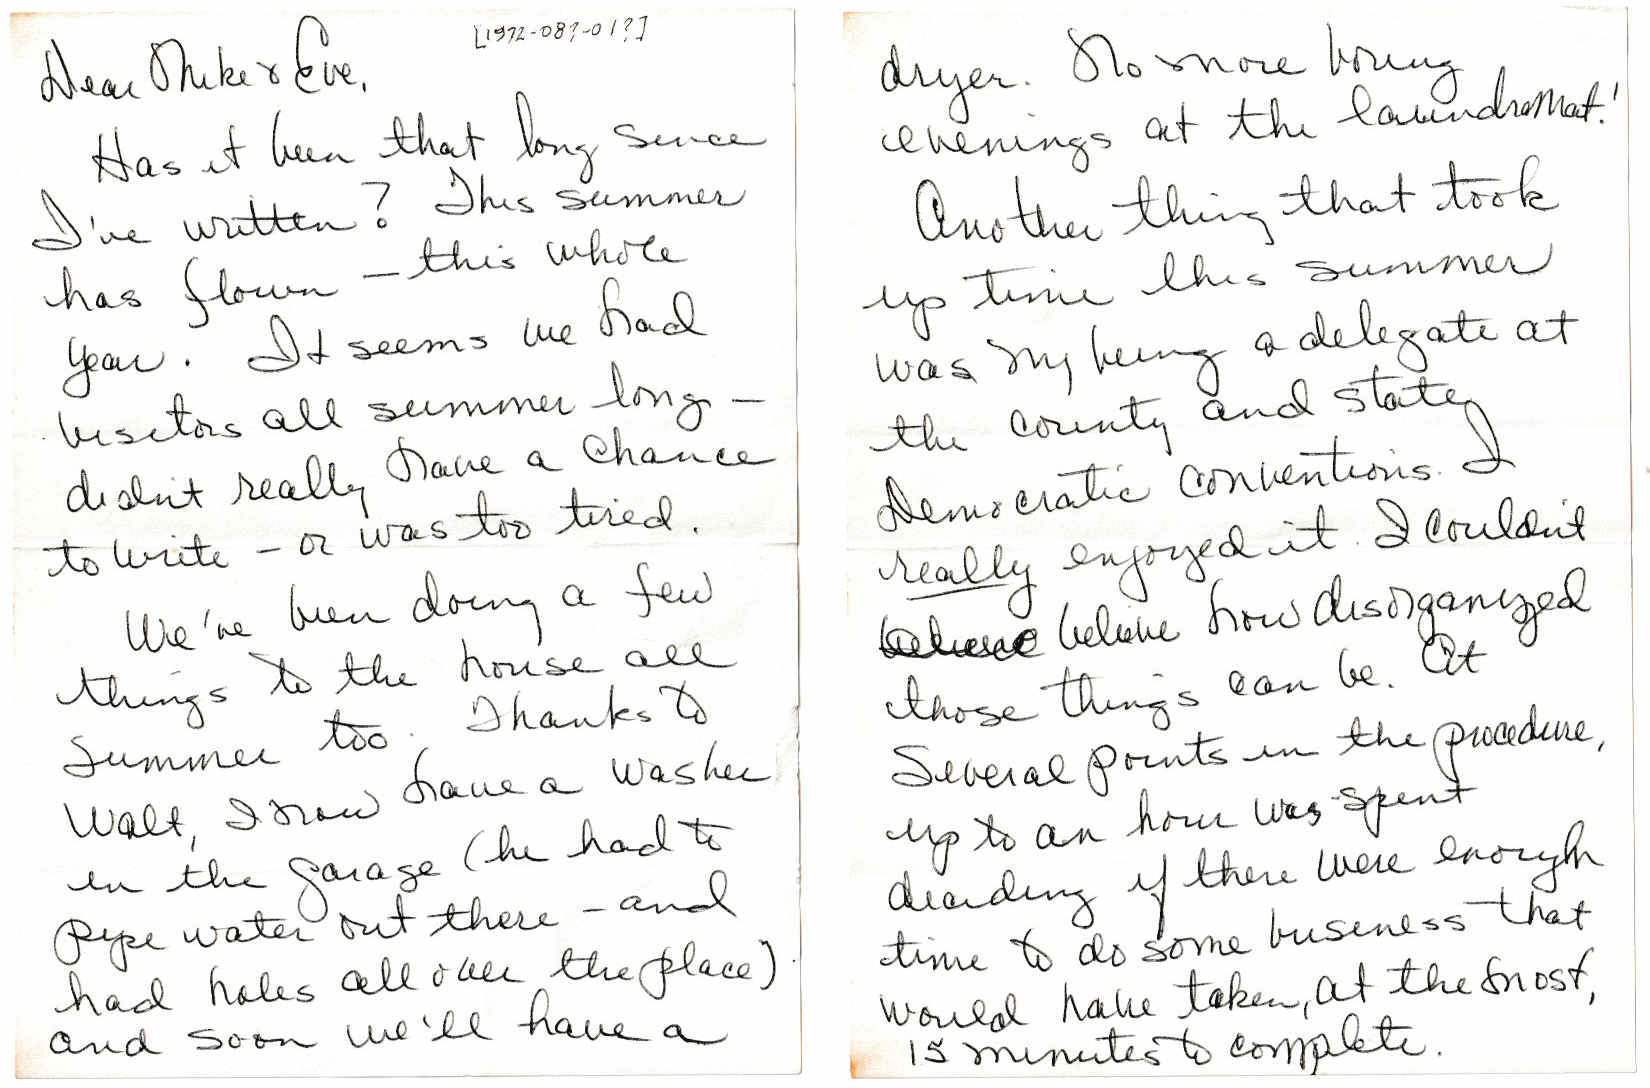 [1972-08?-01?]
Dear Mike & Eve,
Has it been that long since
I've written? This summer
has flown – this whole
year. It seems we had
visitors all summer long –
didn't really have a chance
to write – or was too tired.
We've been doing a few
things to the house all
summer too. Thanks to
Walt, I now have a washer
in the garage (he had to
pipe water out there – and
had holes all over the place)
and soon we'll have a
dryer. No more boring
evenings at the laundromat!
Another thing that took
up time this summer
was my being a delegate at
the county and state
Democratic conventions. I
really enjoyed it. I couldn't
believe how disorganized
those things can be. At
several points in the procedure,
up to an hour was spent
deciding if there were enough
time to do some business that
would have taken, at the most,
15 minutes to complete.